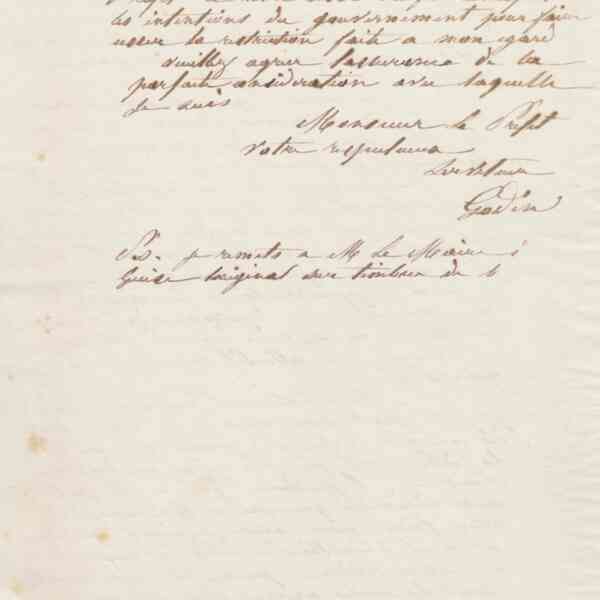 les intentions du gouvernement pour faire
cesser la restriction faite a mon egard
veuillez agreer lassurance de la
parfaite consideration avec laquelle
je suis
Monsieur le Prefet
votre
serviteur
Godin
P.S. je remets a M le Maire
Guise loriginal sur timbre de